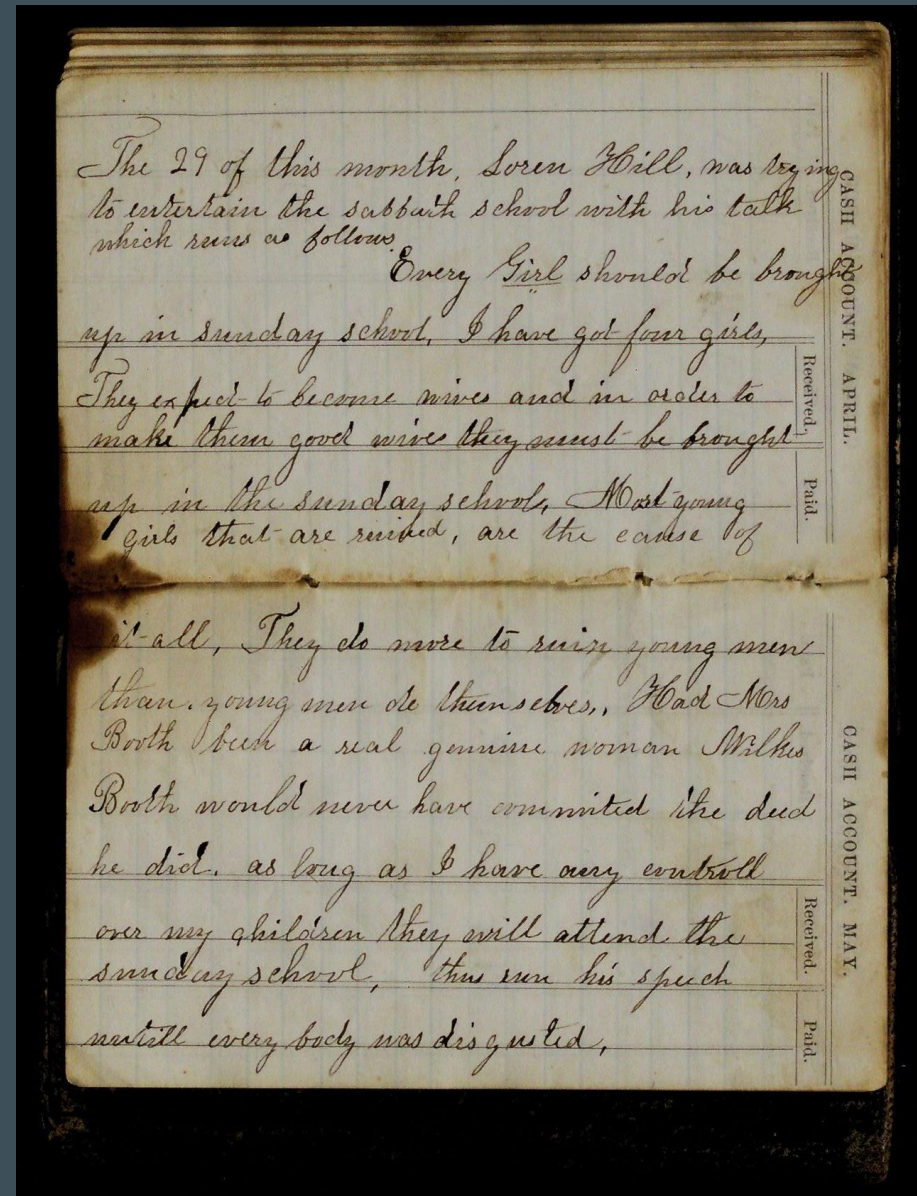 The 29 of this month, Loren Hill, was trying
to entertain the sabbath school with his talk
which runs as follows.
Every Girl should be brought
up in sunday school, I have got four girls,
They expect to become wives and in order to
make them good wives they must be brought
up in the sunday school, Most young
girls that are ruined, are the cause of
it all, They do more to ruin young men
than young men do themselves,, Had Mrs
Booth been a real genuine woman Wilkes
Booth would never have commited the deed
he did. as long as I have any controll
over my children they will attend the
sunday school, thus run his speech
untill every body was disgusted,
CASH ACCOUNT. APRIL.
Received.
Paid.
CASH ACCOUNT. MAY.
Received.
Paid.